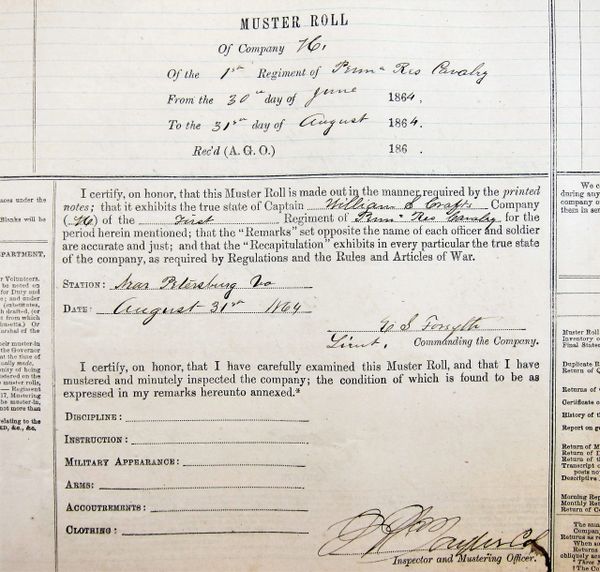 MUSTER ROLL
Of Company H.
Of the 1st Regiment of Penna Res Cavalry
From the 30th day of June 1864.
To the 31st day of August 1864.
Rec'd (A. G. O.) 186 .
I certify, on honor, that this Muster Roll is made out in the manner required by the printed
notes; that it exhibits the true state of Captain William S. Craft's Company
(H) of the First Regiment of Penna Res Cavalry for the
period herein mentioned; that the "Remarks" set opposite the name of each officer and soldier
are accurate and just; and that the "Recapitulation" exhibits in every particular the true state
of the company, as required by Regulations and the Rules and Articles of War.
STATION: Near Petersburg Va
DATE: August 31st 1864
S Forsyth
Lieut. Commanding the Company.
I certify, on honor, that I have carefully examined this Muster Roll, and that I have
mustered and minutely inspected the company; the condition of which is found to be as
expressed in my remarks hereunto annexed.*
DISCIPLINE:
INSTRUCTION:
MILITARY APPEARANCE:
ARMS:
ACCOUTREMENTS:
CLOTHING:
Inspector and Mustering Officer.
aces under the
Blanks will be
EPARTMENT,
r Volunteers.
be noted on
for Duty and
e; and under
(substitutes,
h drafted, (or
e from which
Or a
marshal of the
eir muster-in
the Governor
at the time of
ually made.
unity of being
ntered on the
e muster rolls,
— Regiment
17, Mustering
he muster-in,
not more than
relating to the
ED, &c., &c.
We c
during any
company o
them in se
Muster Roll
Inventory o
Final State
Duplicate R
Return of Q
Returns of
Certificate o
History of t
Report on gu
Return of M
Return of D
Return of th
Transcript o
posts not
Descriptive
Morning Rep
Monthly Ret
Return of C
The same
Company,
Returns as re
When so
Returns of th
obliquely acr
* Three M
† The Co